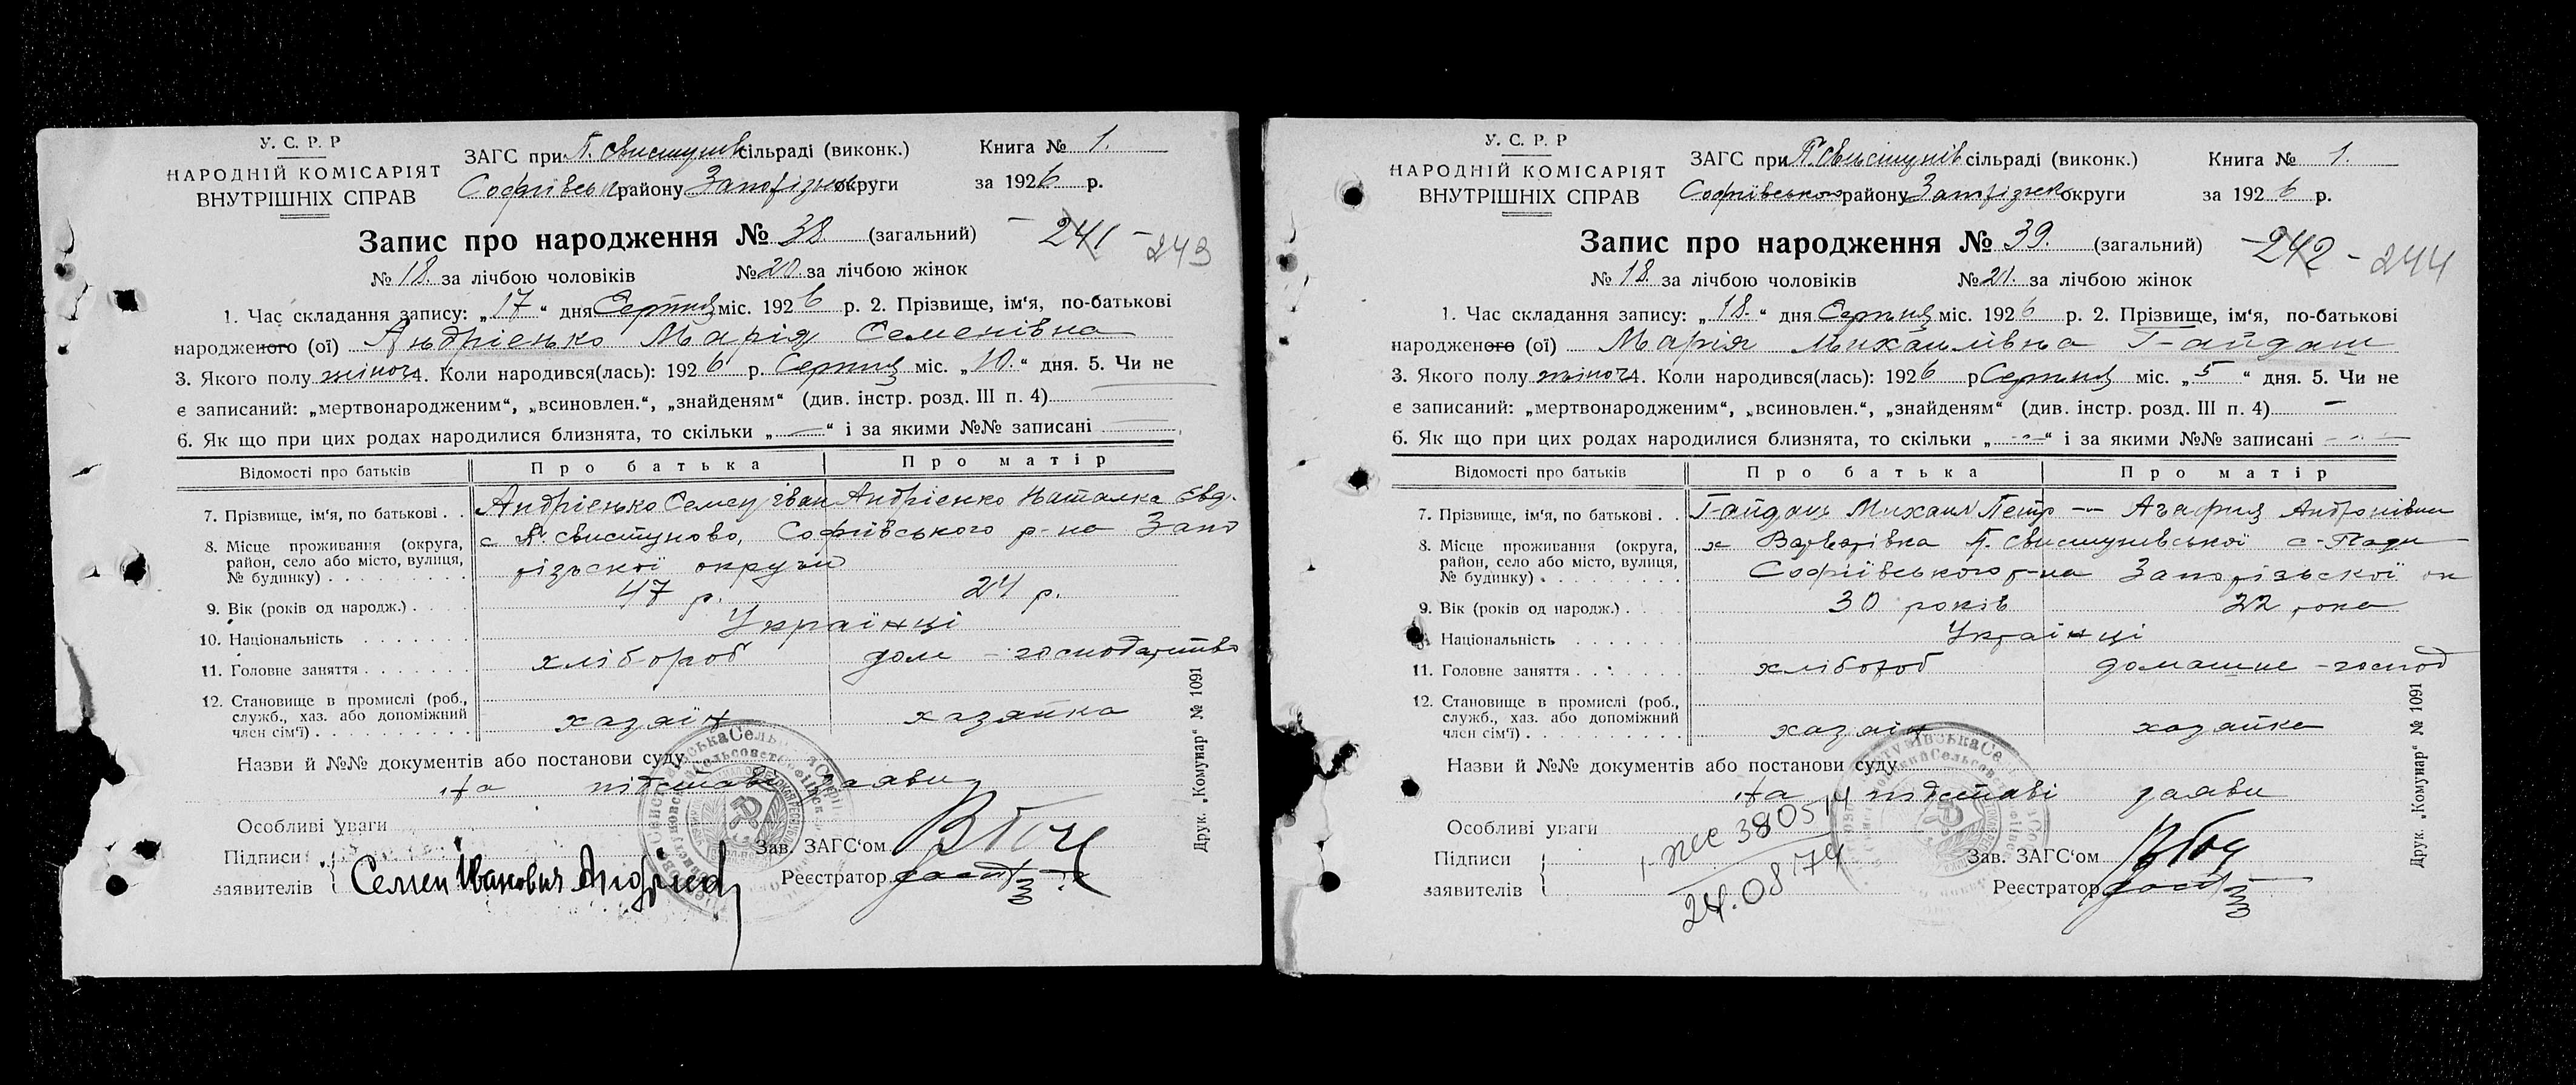 У. С. Р. Р
НАРОДНІЙ КОМІСАРІЯТ
ВНУТРІШНІХ СПРАВ
ЗАГС при П. Свистунів сільраді (виконк.)
Софіївськ району Запорізьк округи
Книга № 1.
за 1926 р.
Запис про народження № 38 (загальний)
241 - 243
№ 18. за лічбою чоловіків № 20. за лічбою жінок
1. Час складання запису: „17“ дня Серпня міс. 1926 р. 2. Прізвище, ім‘я, по-батькові
народженого (ої) Андрієнко Марія Семенівна
3. Якого полу жіноч 4. Коли народився(лась): 1926 р. Серпня міс. „10.“ дня. 5. Чи не
є записаний: „мертвонародженим“, „всиновлен.“, „знайденям“ (див. інстр. розд. III п. 4)
6. Як що при цих родах народилися близнята, то скільки „—“ і за якими №№ записані
Відомості про батьків Про батька Про матір
7. Прізвище, ім‘я, по батькові . . Андрієнко Семен Іван Андрієнко Наталка Євд.
8. Місце проживання (округа, район, село або місто, вулиця, № будинку) с П. Свистуново, Софіївського р-на Запо
різьскої округи
9. Вік (років од народж.) 47 р. 24 р.
10. Національність Українці
11. Головне заняття хлібороб дом - господарство
12. Становище в промислі (роб., служб., хаз. або допоміжний член сім‘ї) хазяїн хазяйка
Назви й №№ документів або постанови суду
На підставі заяви
Особливі уваги
Підписи
заявителів
Семен Іванович Андрієн
Зав. ЗАГС‘ом
Реєстратор
Друк. „Комунар“ № 1091
У. С. Р. Р
НАРОДНІЙ КОМІСАРІЯТ
ВНУТРІШНІХ СПРАВ
ЗАГС при П. Свистунів сільраді (виконк.)
Софіївського району Запорізьк округи
Книга № 1.
за 1926 р.
Запис про народження № 39. (загальний)
- 242 - 244
№ 18. за лічбою чоловіків № 21. за лічбою жінок
1. Час складання запису: „18.“ дня Серпня міс. 1926 р. 2. Прізвище, ім‘я, по-батькові
народженого (ої) Марія Михайлівна Гайдаш
3. Якого полу жіноч 4. Коли народився(лась): 1926 р Серпня міс. „5“ дня. 5. Чи не
є записаний: „мертвонародженим“, „всиновлен.“, „знайденям“ (див. інстр. розд. III п. 4) —
6. Як що при цих родах народилися близнята, то скільки „—“ і за якими №№ записані
Відомості про батьків Про батька Про матір
7. Прізвище, ім‘я, по батькові . . Гайдаш Михаил Петр — Агафия Андронівни
8. Місце проживання (округа, район, село або місто, вулиця, № будинку) х Варварівка П. Свистунівської с-Ради
Софіївського р-на Запорізьскої ок
9. Вік (років од народж.) 30 років 22 рока
Національність Українці
11. Головне заняття хлібороб домашне - господ
12. Становище в промислі (роб., служб., хаз. або допоміжний член сім‘ї) хазяїн хазяйка
Назви й №№ документів або постанови суду
На підставі заяви
Особливі уваги
380514
24.08 74
Підписи
заявителів
Зав. ЗАГС‘ом
Реєстратор
Друк. „Комунар“ № 1091